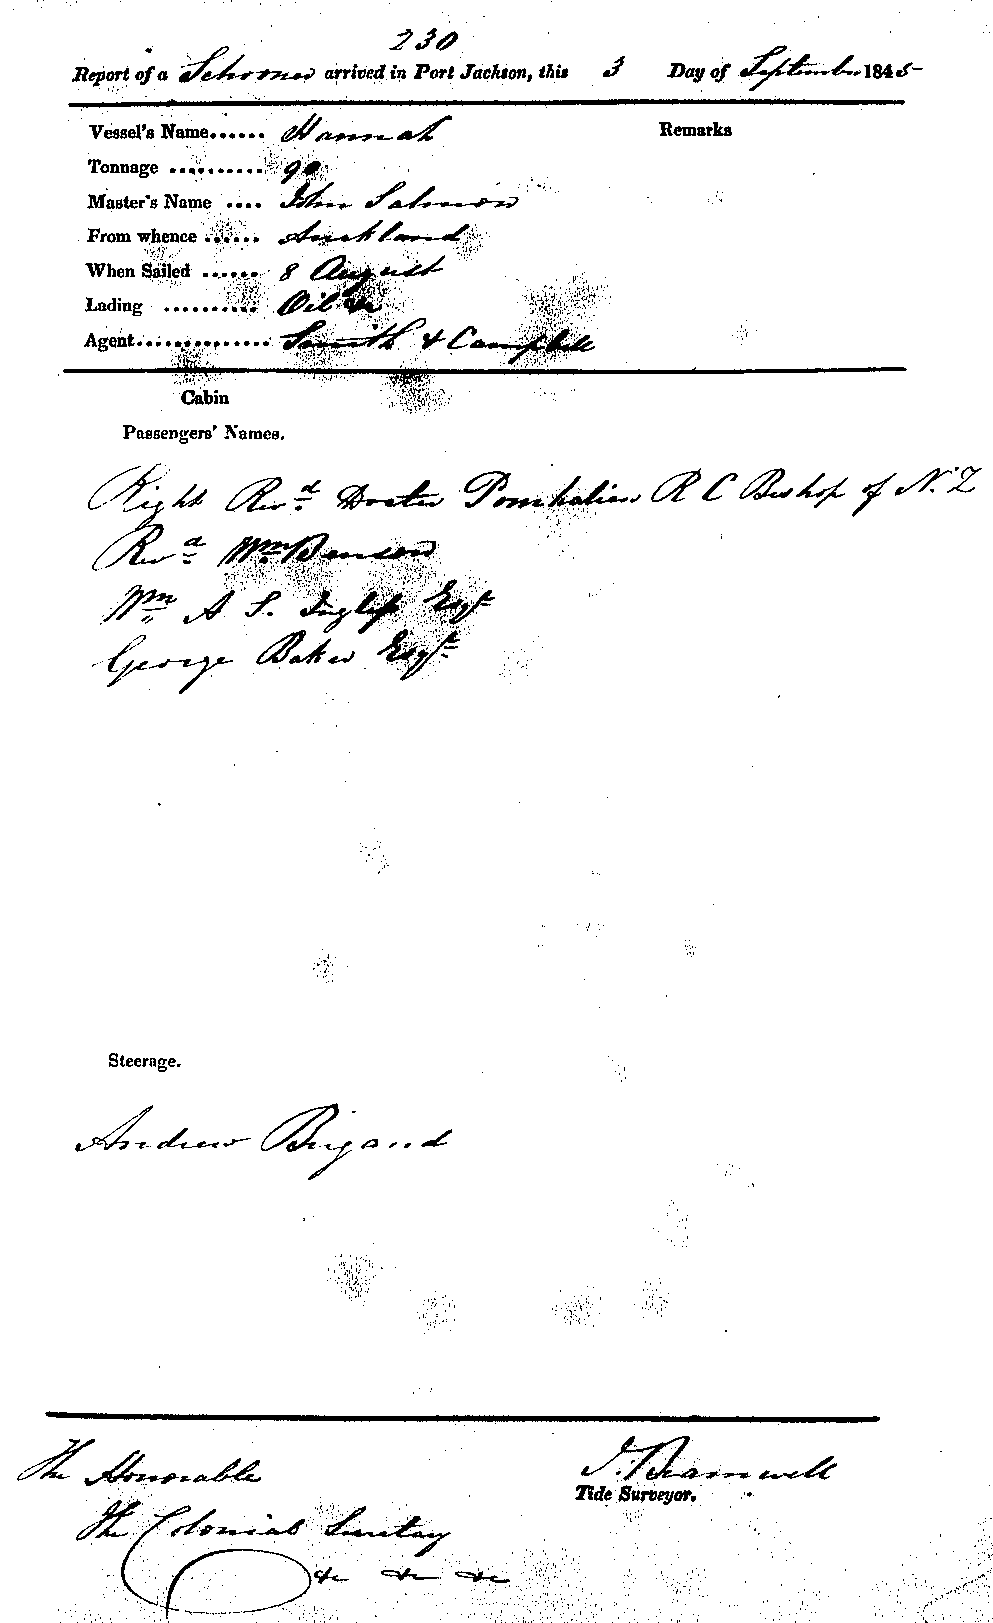 230
Report of a Schooner arrived in Port Jackson, this 3 Day of September 1845
Vessel's Name...... Hannah
Remarks
Tonnage .......... 90
Master's Name .... John Salmon
From whence ...... Auckland
When Sailed ...... 8 August
Lading .......... Oil &c
Agent.............. Smith & Campbell
Cabin
Passengers' Names.
Right Revd Doctor Pompalier R C Bishop of N. Z
Revd Wm Benson
Wm A S. Esqr
George Baker Esqr
Steerage.
Andrew Brigand
The Honorable
J. Bramwell
Tide Surveyor.
The Colonial Secretary
&c &c &c